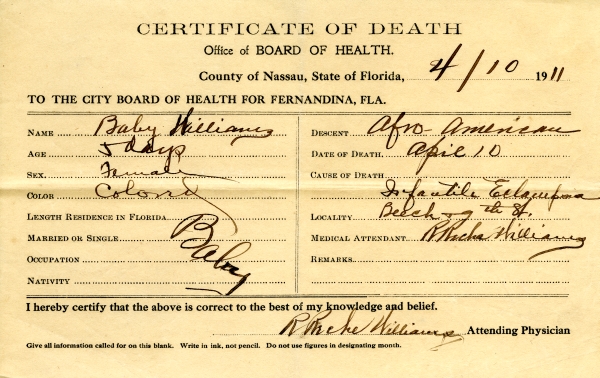 CERTIFICATE OF DEATH
Office of BOARD OF HEALTH.
County of Nassau, State of Florida, 4/10 1911
TO THE CITY BOARD OF HEALTH FOR FERNANDINA, FLA.
NAME Baby Williams
AGE 5 days
SEX. Female
COLOR Colored
LENGTH RESIDENCE IN FLORIDA
MARRIED OR SINGLE
OCCUPATION
NATIVITY
Baby
DESCENT Afro-American
DATE OF DEATH April 10
CAUSE OF DEATH
Infantile Eclampsia
LOCALITY Beech 9th St.
MEDICAL ATTENDANT Williams
REMARKS
I hereby certify that the above is correct to the best of my knowledge and belief.
Williams Attending Physician
Give all information called for on this blank. Write in ink, not pencil. Do not use figures in designating month.